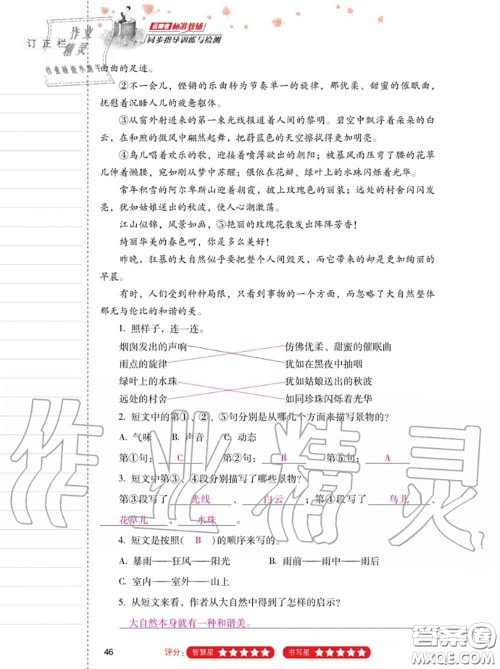 订正栏
云南省标准教辅
同步指导训练与检测
作业
精灵
曲曲的足迹。
②不一会儿，铿锵的乐曲转为节奏单一的旋律，那优柔、甜蜜的催眠曲，
抚慰着沉睡人儿的疲惫躯体。
③从窗外射进来的第一束光线报道着人间的黎明。碧空中飘浮着朵朵的白
云，在和煦的微风中翩然起舞，把蔚蓝色的天空擦拭得更加明亮。
④鸟儿唱着欢乐的歌，迎接着喷薄欲出的朝阳；被暴风雨压弯了腰的花草
儿伸着懒腰，宛如刚从梦中苏醒；偎依在花瓣、绿叶上的水珠闪烁着光华。
常年积雪的阿尔卑斯山迎着朝霞，披上玫瑰色的丽装；远处的村舍闪闪发
亮，犹如姑娘送出的秋波，使人心潮激荡。
江山似锦，风景如画，⑤艳丽的玫瑰花散发出阵阵芳香！
绮丽华美的春色呵，你是多么美好！
昨晚，狂暴的大自然似乎要把整个人间毁灭，而它带来的却是更加绚丽的
早晨。
有时，人们受到种种局限，只看到事物的一个方面，而忽略了大自然整体
那无与伦比的和谐的美。
1. 照样子，连一连。
烟囱发出的声响 仿佛优柔、甜蜜的催眠曲
雨点的旋律 犹如在黑夜中抽咽
绿叶上的水珠 犹如姑娘送出的秋波
远处的村舍 如同珍珠闪烁着光华
2. 短文中的第①、②、⑤句分别是从哪几个方面来描写景物的？
A. 气味 B. 声音 C. 动态
第①句： C 第②句： B 第⑤句： A
3. 短文中的第③、④段分别描写了哪些景物？
第③段写了 光线 、 白云 ；第④段写了 鸟儿 、
花草儿 、 水珠 。
4. 短文是按照( B )的顺序来写的。
A. 暴雨——狂风——阳光 B. 雨前——雨中——雨后
C. 室内——室外——山上
5. 从短文来看，作者从大自然中得到了怎样的启示？
大自然本身就有一种和谐美。
46 评分： 智慧星 ★★★★★ 书写星 ★★★★★
作业精灵
答案圈
MXQE.COM